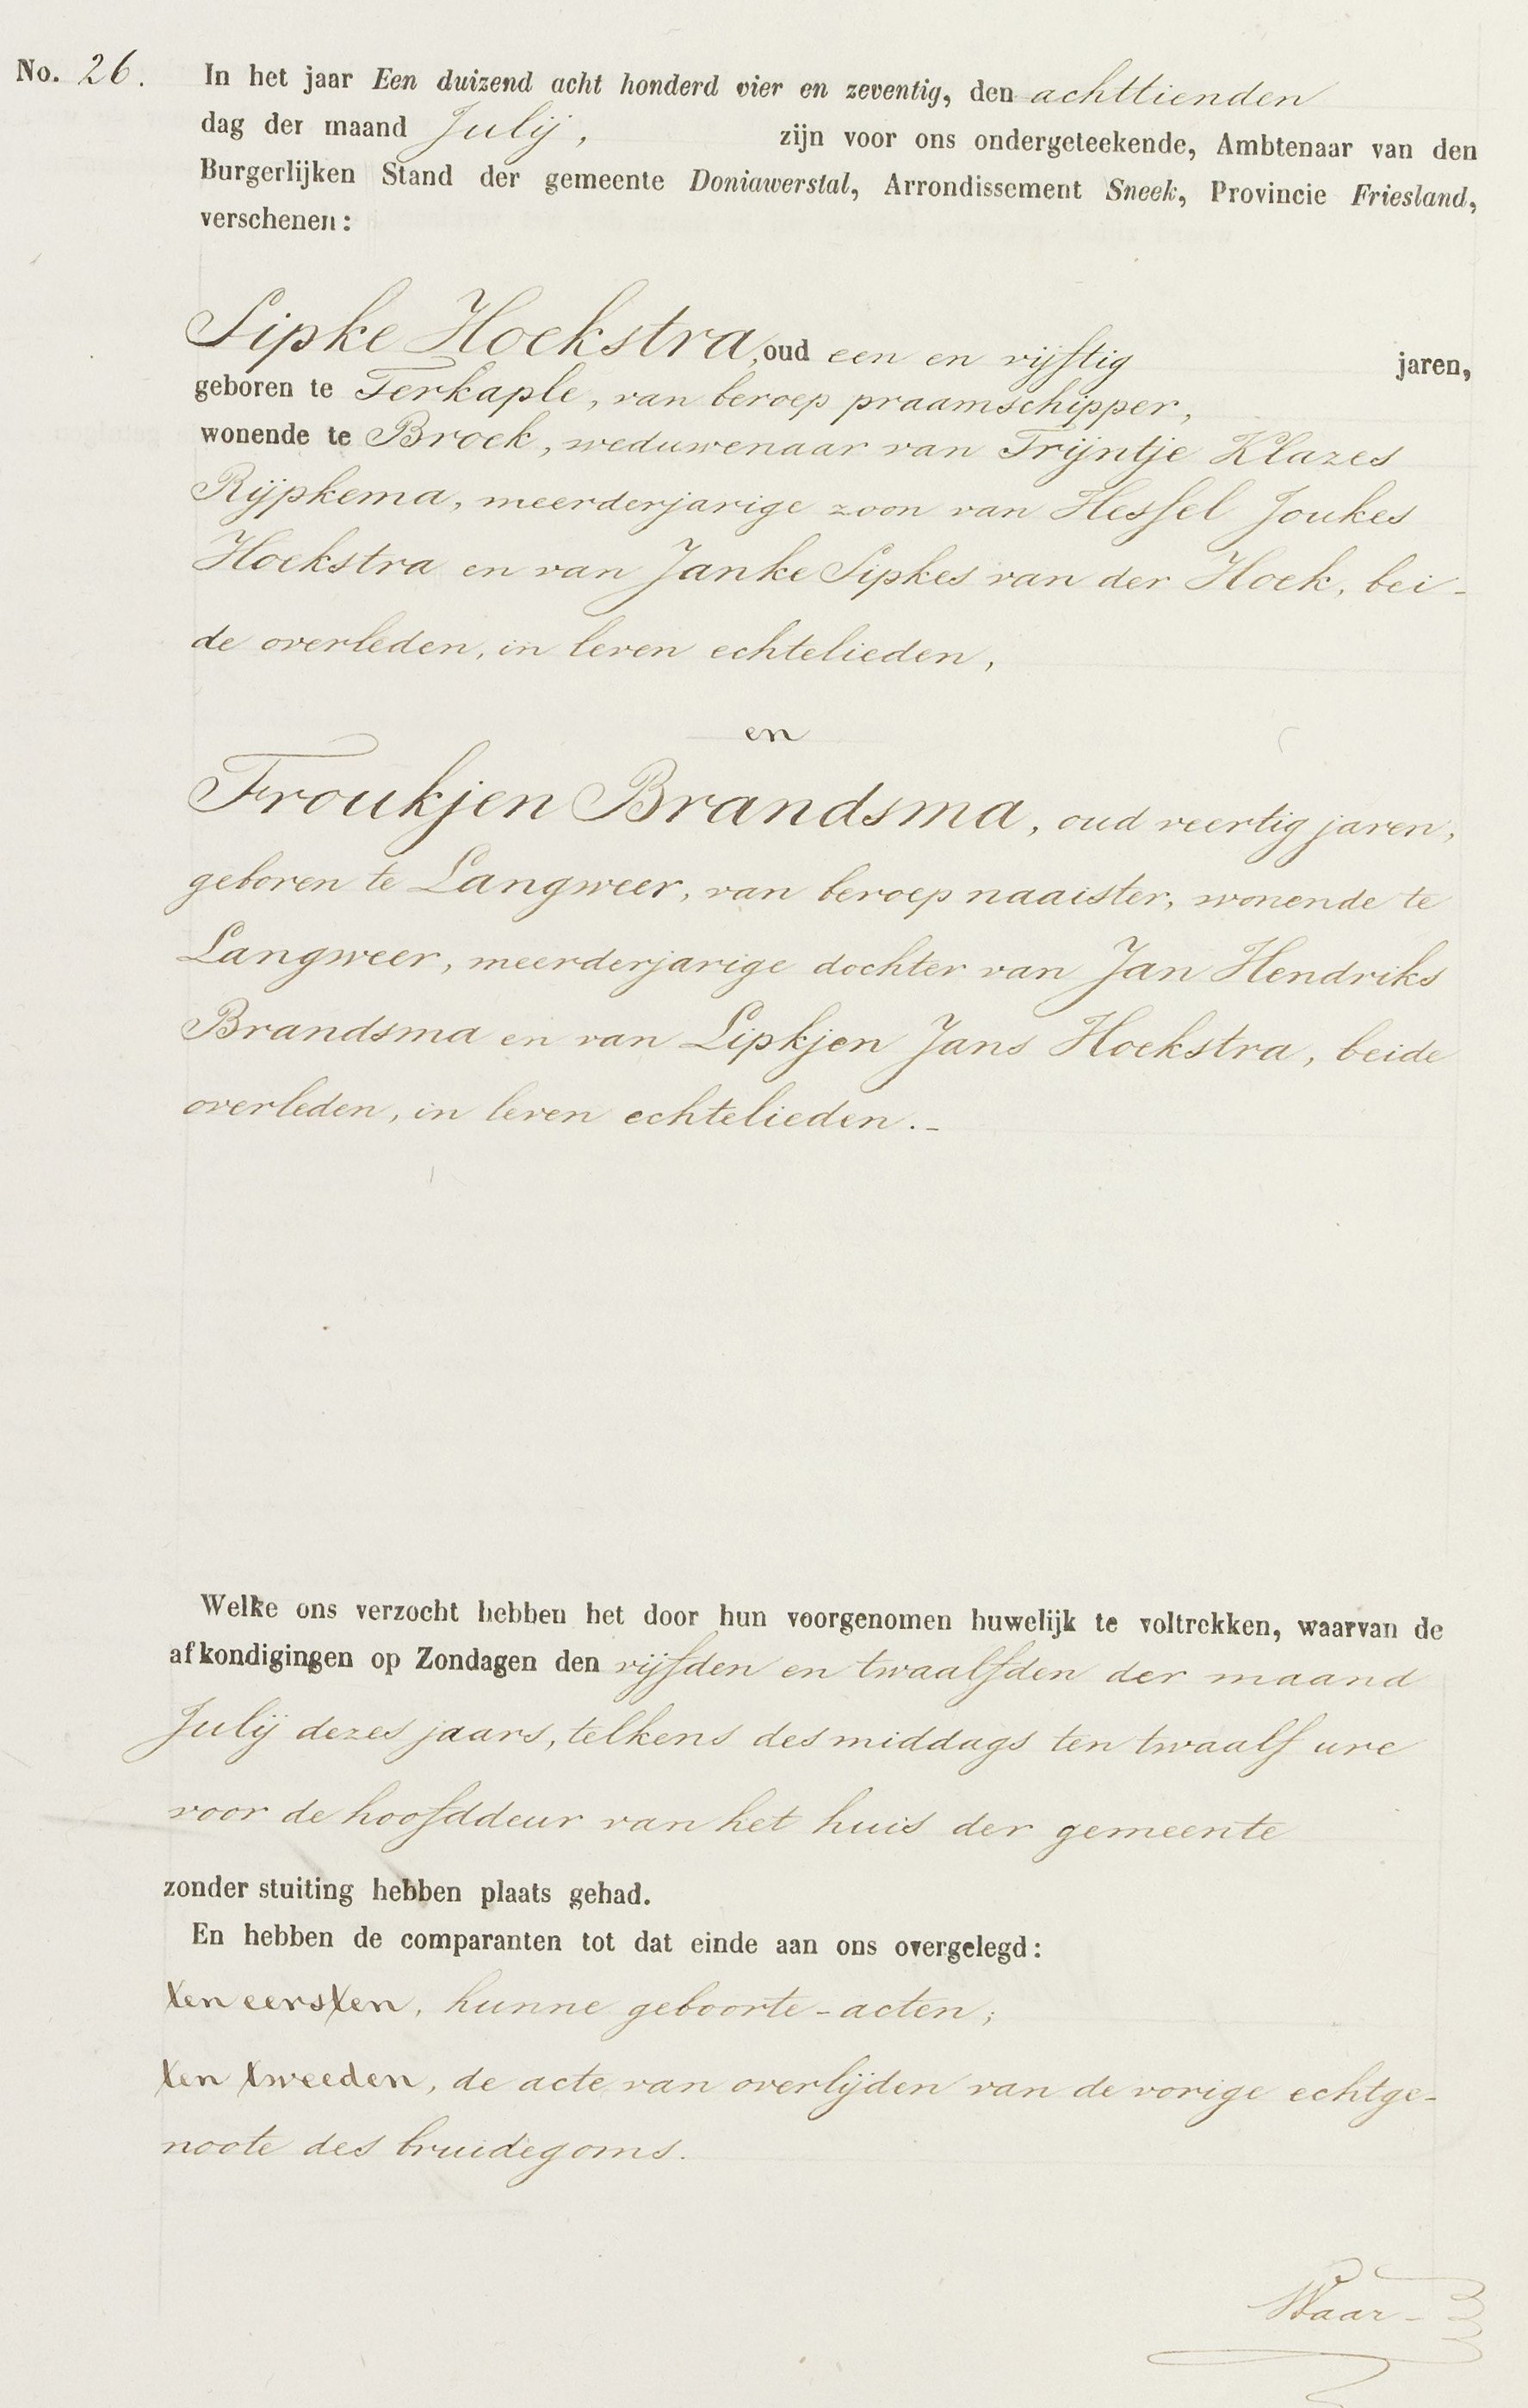 No. 26. In het jaar Een duizend acht honderd vier en zeventig, den achttienden
dag der maand Julij, zijn voor ons ondergeteekende, Ambtenaar van den
Burgerlijken Stand der gemeente Doniawerstal, Arrondissement Sneek, Provincie Friesland,
verschenen:
Sipke Hoekstra, oud een en vijftig jaren,
geboren te Terkaple, van beroep praamschipper,
wonende te Broek, weduwenaar van Trijntje Klazes
Rijpkema, meerderjarige zoon van Hessel Joukes
Hoekstra en van Janke Sipkes van der Hoek, bei-
de overleden, in leven echtelieden,
en
Froukjen Brandsma, oud veertig jaren,
geboren te Langweer, van beroep naaister, wonende te
Langweer, meerderjarige dochter van Jan Hendriks
Brandsma en van Lipkjen Jans Hoekstra, beide
overleden, in leven echtelieden.-
Welke ons verzocht hebben het door hun voorgenomen huwelijk te voltrekken, waarvan de
afkondigingen op Zondagen den vijfden en twaalfden der maand
Julij dezes jaars, telkens des middags ten twaalf ure
voor de hoofddeur van het huis der gemeente
zonder stuiting hebben plaats gehad.
En hebben de comparanten tot dat einde aan ons overgelegd:
ten eersten, hunne geboorte-acten;
ten tweeden, de acte van overlijden van de vorige echtge-
noote des bruidegoms.
Waar-